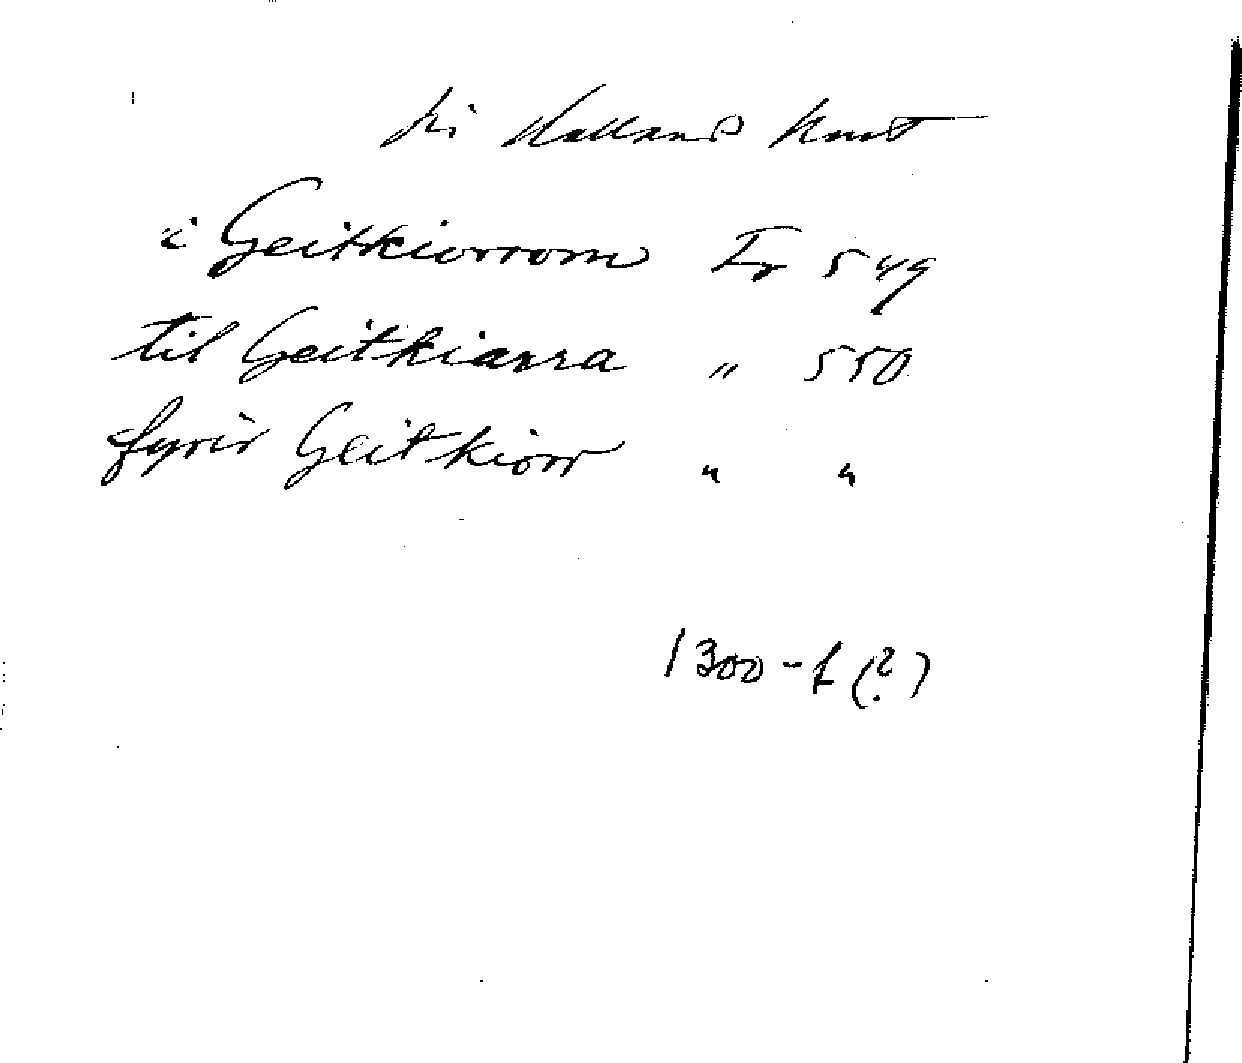 i Hallands kust
i Geitkiorrom Fr 549
til Geitkiarra " 550
fyrir Geitkiorr " "
1300-t (?)